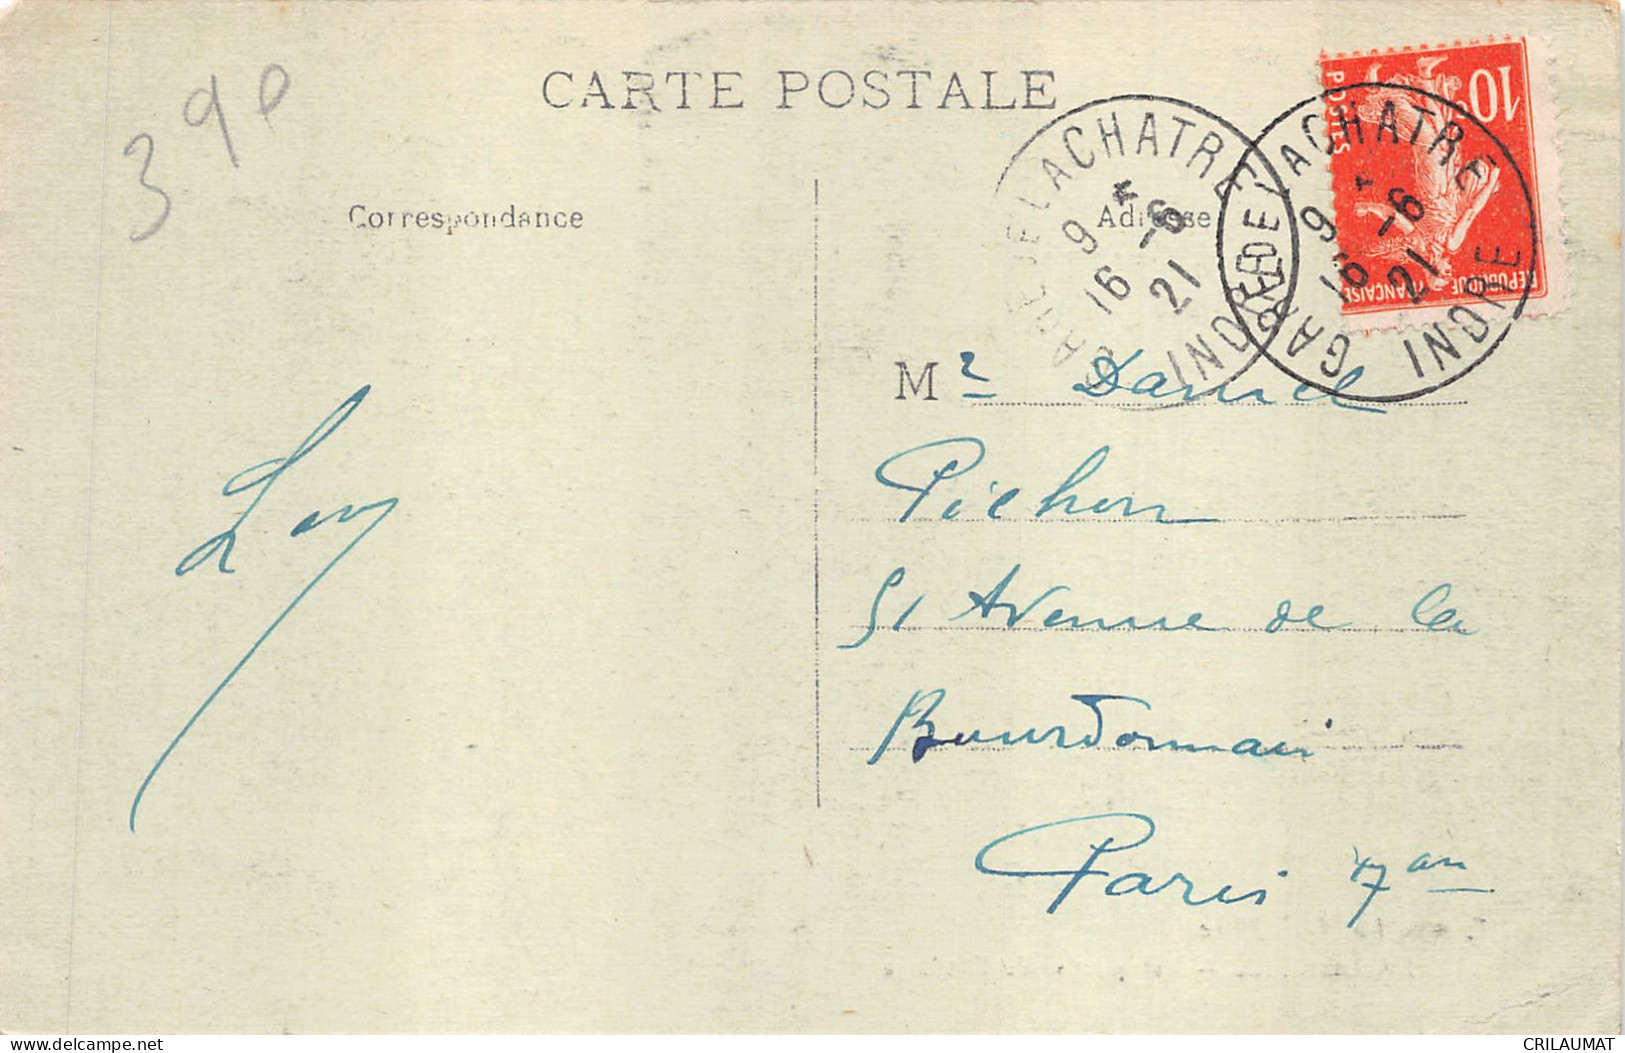 CARTE POSTALE
3 90
Correspondance
Adresse
GARE DE LACHATRE
9 16 -6 21
INDRE
GARE DE LACHATRE
9 16 -6 21
INDRE
10
POSTES
REPUBLIQUE FRANÇAISE
Mr Daniel
Pichon
51 Avenue de la
Bourdonnais
Paris 7
www.delcampe.net
CRILAUMAT